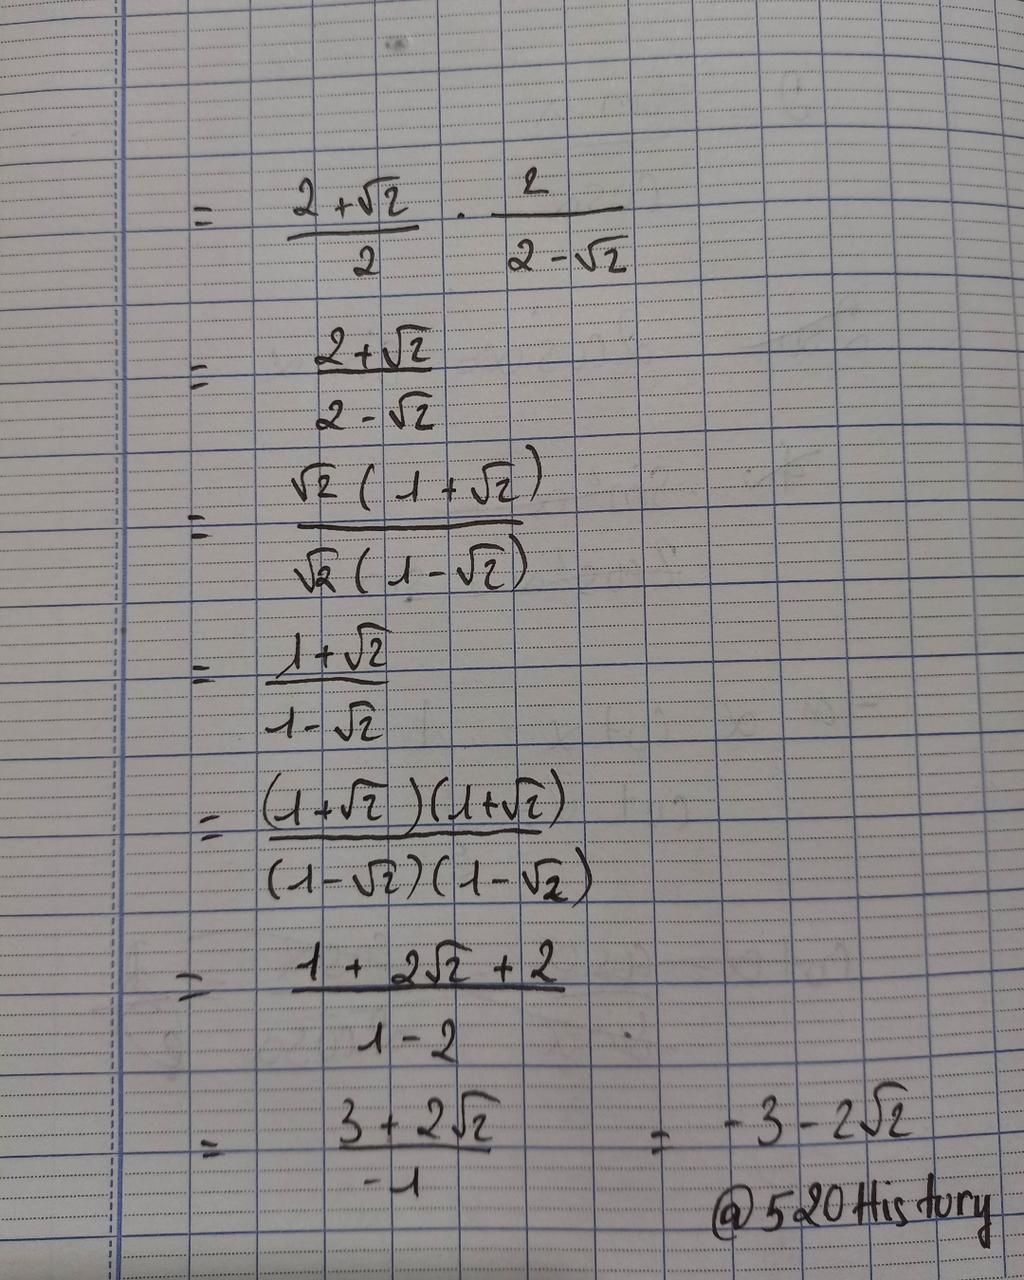 = (2+√2)/2 · 2/(2-√2)
= (2+√2)/(2-√2)
= √2(1+√2)/√2(1-√2)
= (1+√2)/(1-√2)
= (1+√2)(1+√2)/(1-√2)(1-√2)
= (1+2√2+2)/(1-2)
= (3+2√2)/-1 = -3-2√2
@520History